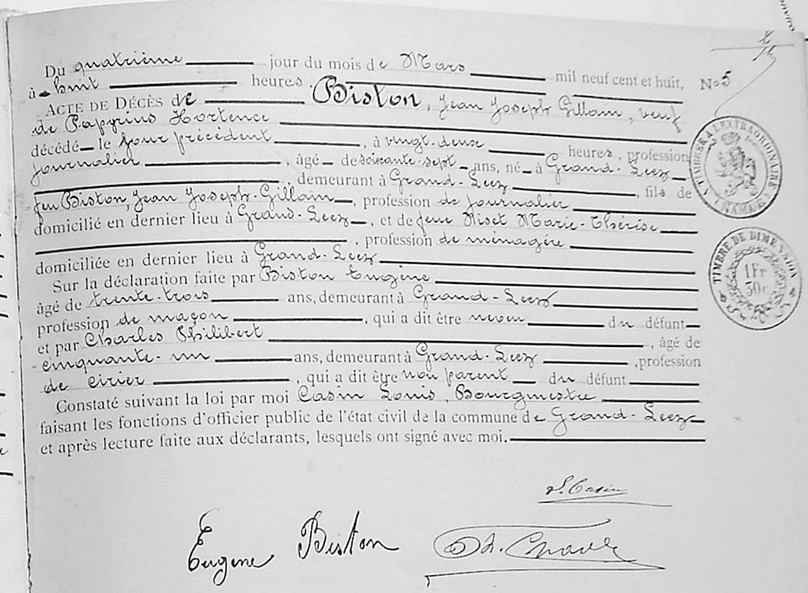 Du quatrième jour du mois de Mars mil neuf cent et huit, No 5
à huit heures
ACTE DE DÉCÈS de Biston, Jean Joseph Gillain, veuf
de Papyrius Hortence
décédé le jour précédent, à vingt-deux heures, profession
journalier, âgé de soixante-sept ans, né à Grand-Leez
, demeurant à Grand-Leez, fils de
feu Biston, Jean Joseph-Gillain, profession de journalier
domicilié en dernier lieu à Grand-Leez, et de feue Niset Marie-Thérèse
, profession de ménagère
domiciliée en dernier lieu à Grand-Leez
Sur la déclaration faite par Biston Eugène
âgé de trente-trois ans, demeurant à Grand-Leez
profession de maçon, qui a dit être neveu du défunt
et par Charles Philibert, âgé de
cinquante-un ans, demeurant à Grand-Leez, profession
de cirier, qui a dit être non parent du défunt
Constaté suivant la loi par moi Casin Louis, Bourgmestre
faisant les fonctions d'officier public de l'état civil de la commune de Grand-Leez
et après lecture faite aux déclarants, lesquels ont signé avec moi.
TIMBRE A L'EXTRAORDINAIRE
NAMUR
TIMBRE DE DIMENSION
1 Fr
30c
L. Casin
Eugène Biston